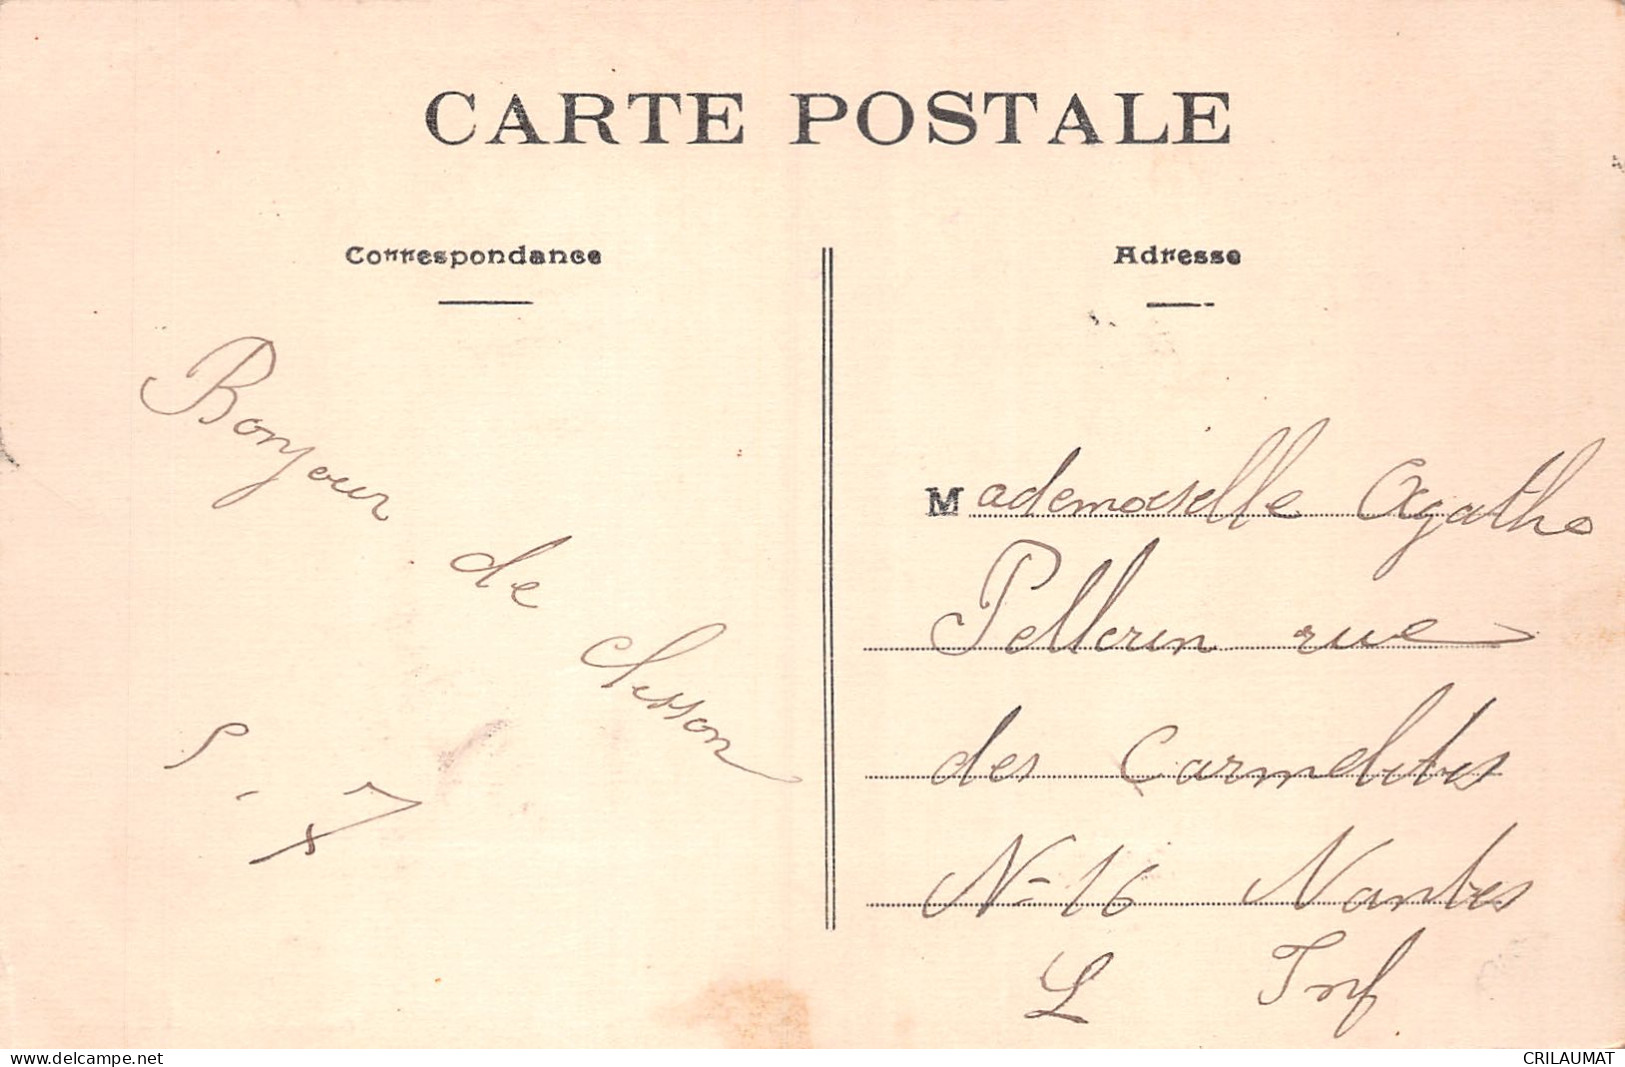 CARTE POSTALE
Correspondance
Adresse
Bonjour de Clisson
S. 7
Mademoiselle Agathe
Pellerin rue
des Carmelites
N= 16 Nantes
L Inf
www.delcampe.net
CRILAUMAT